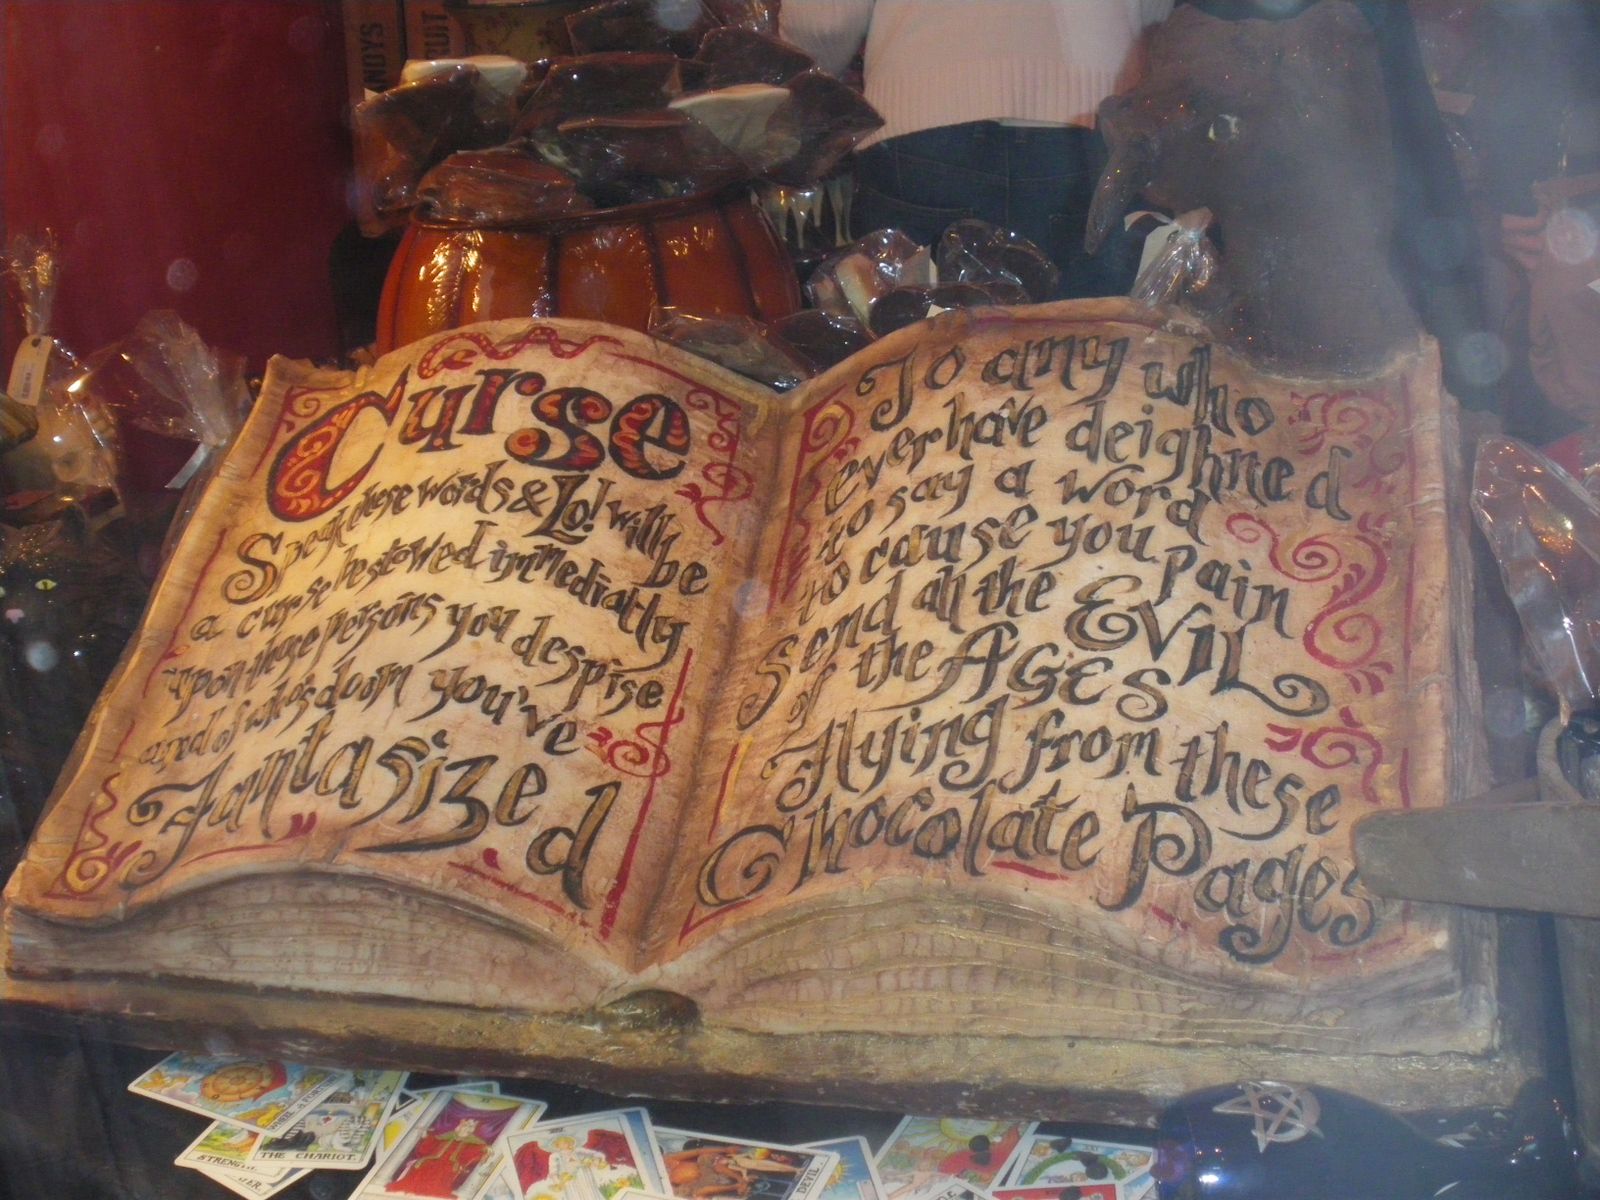 Curse
Speak these words & Lo! will be
a curse bestowed immediatly
upon those persons you despise
and of who's doom you've
Fantasized
To any who
ever have deighned
to say a word
to cause you pain
Send all the EVIL
of the AGES
Flying from these
Chocolate Pages
WHEEL of FORTUNE
STRENGTH
THE CHARIOT.
DEVIL